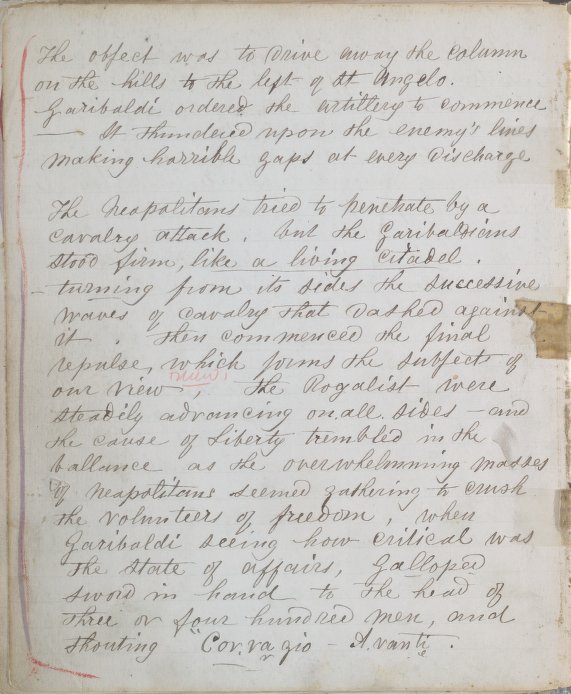 The object was to drive away the column
on the hills to the left of St Angelo.
Garibaldi ordered the artillery to commence
It thundered upon the enemy's lines
making horrible gaps at every discharge
The Neapolitans tried to penetrate by a
cavalry attack. but the Garibaldians
stood firm, like a living citadel.
- turning from its sides the successive
waves of cavalry that dashed against
it. Then commenced the final
repulse, which forms the subject of
our view. The Royalist were
view.
steadily advancing on all sides - and
the cause of Liberty trembled in the
ballance as the overwhelmning masses
of Neapolitans seemed gathering to crush
the volunteers of freedom, when
Garibaldi seeing how critical was
the state of affairs, Galloped
sword in hand to the head of
three or four hundred men, and
shouting "Cor.va zio - A.vanti.
r e